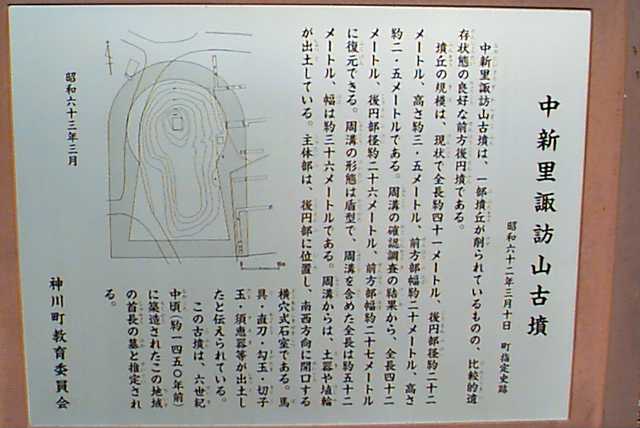 中新里諏訪山古墳
昭和六十二年三月十日　町指定史跡
中新里諏訪山古墳は、一部墳丘が削られているものの、比較的遺
存状態の良好な前方後円墳である。
墳丘の規模は、現状で全長約四十一メートル、後円部径約二十二
メートル、高さ約三・五メートル、前方部幅約二十メートル、高さ
約二・五メートルである。周溝の確認調査の結果から、全長四十二
メートル、後円部径約二十六メートル、前方部幅約二十七メートル
に復元できる。周溝の形態は盾型で、周溝を含めた全長は約五十二
メートル、幅は約三十六メートルである。周溝からは、土器や埴輪
が出土している。主体部は、後円部に位置し、南西方向に開口する
横穴式石室である。馬
具・直刀・勾玉・切子
玉・須恵器等が出土し
たと伝えられている。
この古墳は、六世紀
中頃（約一四五〇年前）
に築造されたこの地域
の首長の墓と推定され
る。
昭和六十三年三月
神川町教育委員会